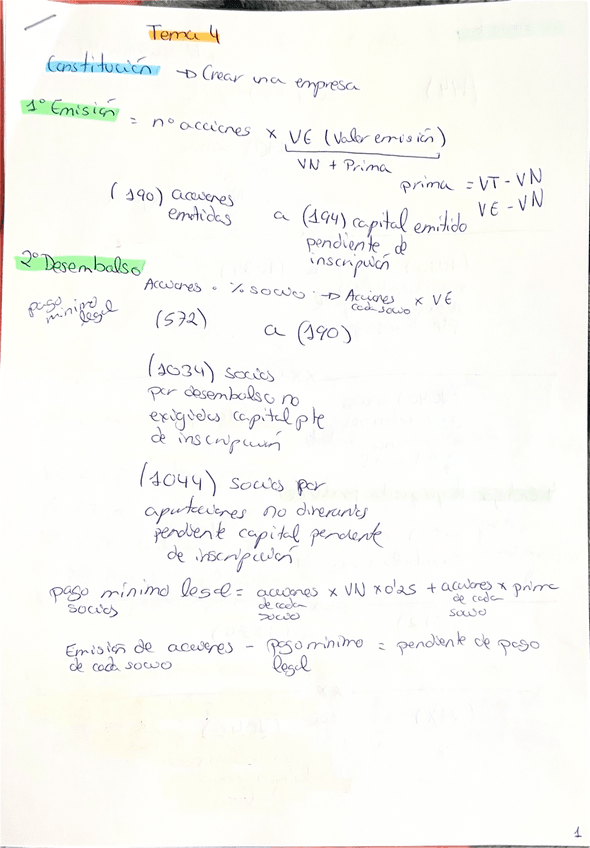 Tema 4
Constitución → Crear una empresa
1º Emisión = nº acciones x VE (Valor emisión)
VN + Prima
prima = VT - VN
VE - VN
(190) acciones emitidas a (194) capital emitido pendiente de inscripción
2º Desembalso
pago mínimo legal
Acciones · % socio → Acciones cada socio x VE
(572) a (190)
(1034) socios
por desembalso no
exigidos capital pte
de inscripción
(1044) socios por
aportaciones no dinerarias
pendiente capital pendente
de inscripción
pago mínimo legal socios = acciones de cada socio x VN x 0'25 + acciones de cada socio x prima
Emisión de acciones de cada socio - pago mínimo legal = pendiente de pago
1